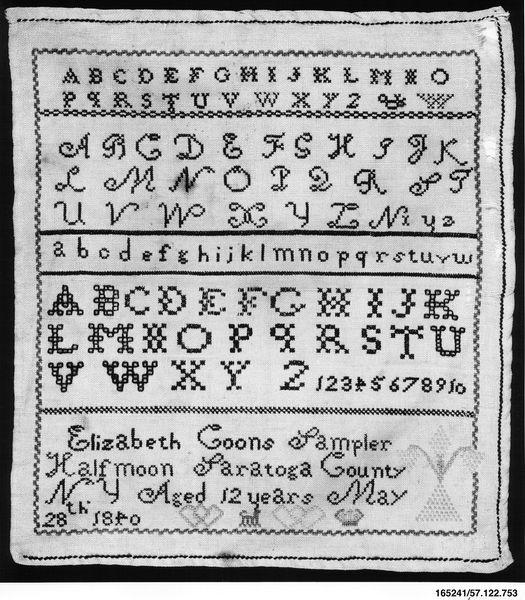 A B C D E F G H I J K L M N O
P q R S T U V W X Y Z
A B C D E F G H I J K
L M N O P Q R S T
U V W X Y Z
a b c d e f g h i j k l m n o p q r s t u v w
A B C D E F G H I J K
L M N O P q R S T U
V W X Y Z 1 2 3 4 5 6 7 8 9 10
Elizabeth Coons Sampler
Halfmoon Saratoga County
N Y Aged 12 years May
28th 1840
165241/57.122.753